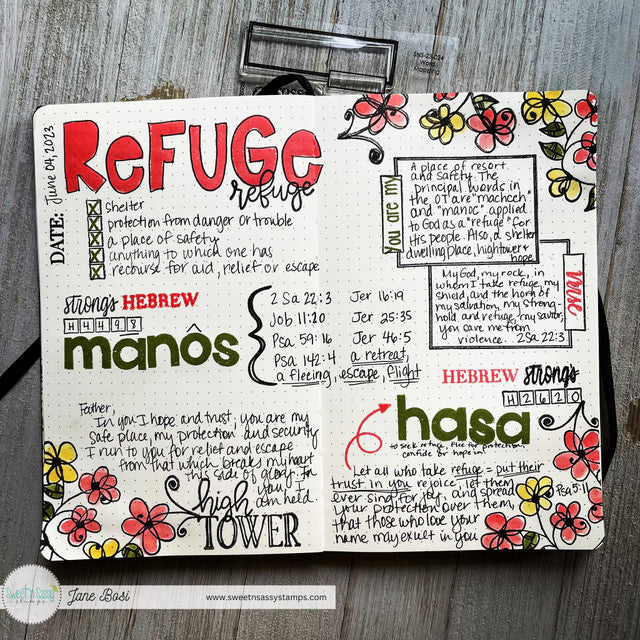 SNS-23C24
Word
Mapping
DATE: June 04, 2023
ReFUGe
refuge
shelter
protection from danger or trouble
a place of safety
anything to which one has
recourse for aid, relief or escape
strong's HEBREW
H4498
mānôs
2 Sa 22:3 Jer 16:19
Job 11:20 Jer 25:35
Psa 59:16 Jer 46:5
Psa 142:4 a retreat,
a fleeing, escape, flight
Father,
In you I hope and trust, you are my
safe place, my protection and security
I run to you for relief and escape
from that which breaks my heart
this side of glory. In
you, I
am held.
high
TOWER
You are my
A place of resort
and safety. The
principal words in
the OT are "machceh"
and "manoc" applied
to God as a "refuge" for
His people. Also, a shelter
dwelling place, hightower &
hope
verse
My God, my rock, in
whom I take refuge, my
shield, and the horn of
my salvation, my strong-
hold and refuge, my savior,
you save me from
violence. 2Sa 22:3
HEBREW strong's
H2620
hasa
to seek refuge, flee for protection,
confide or hope in
Let all who take refuge = put their
trust in you rejoice, let them
ever sing for joy, and spread Psa 5:11
your protection over them,
that those who love your
name may exult in you
Sweet 'n Sassy
stamps
Jane Bosi
www.sweetnsassystamps.com